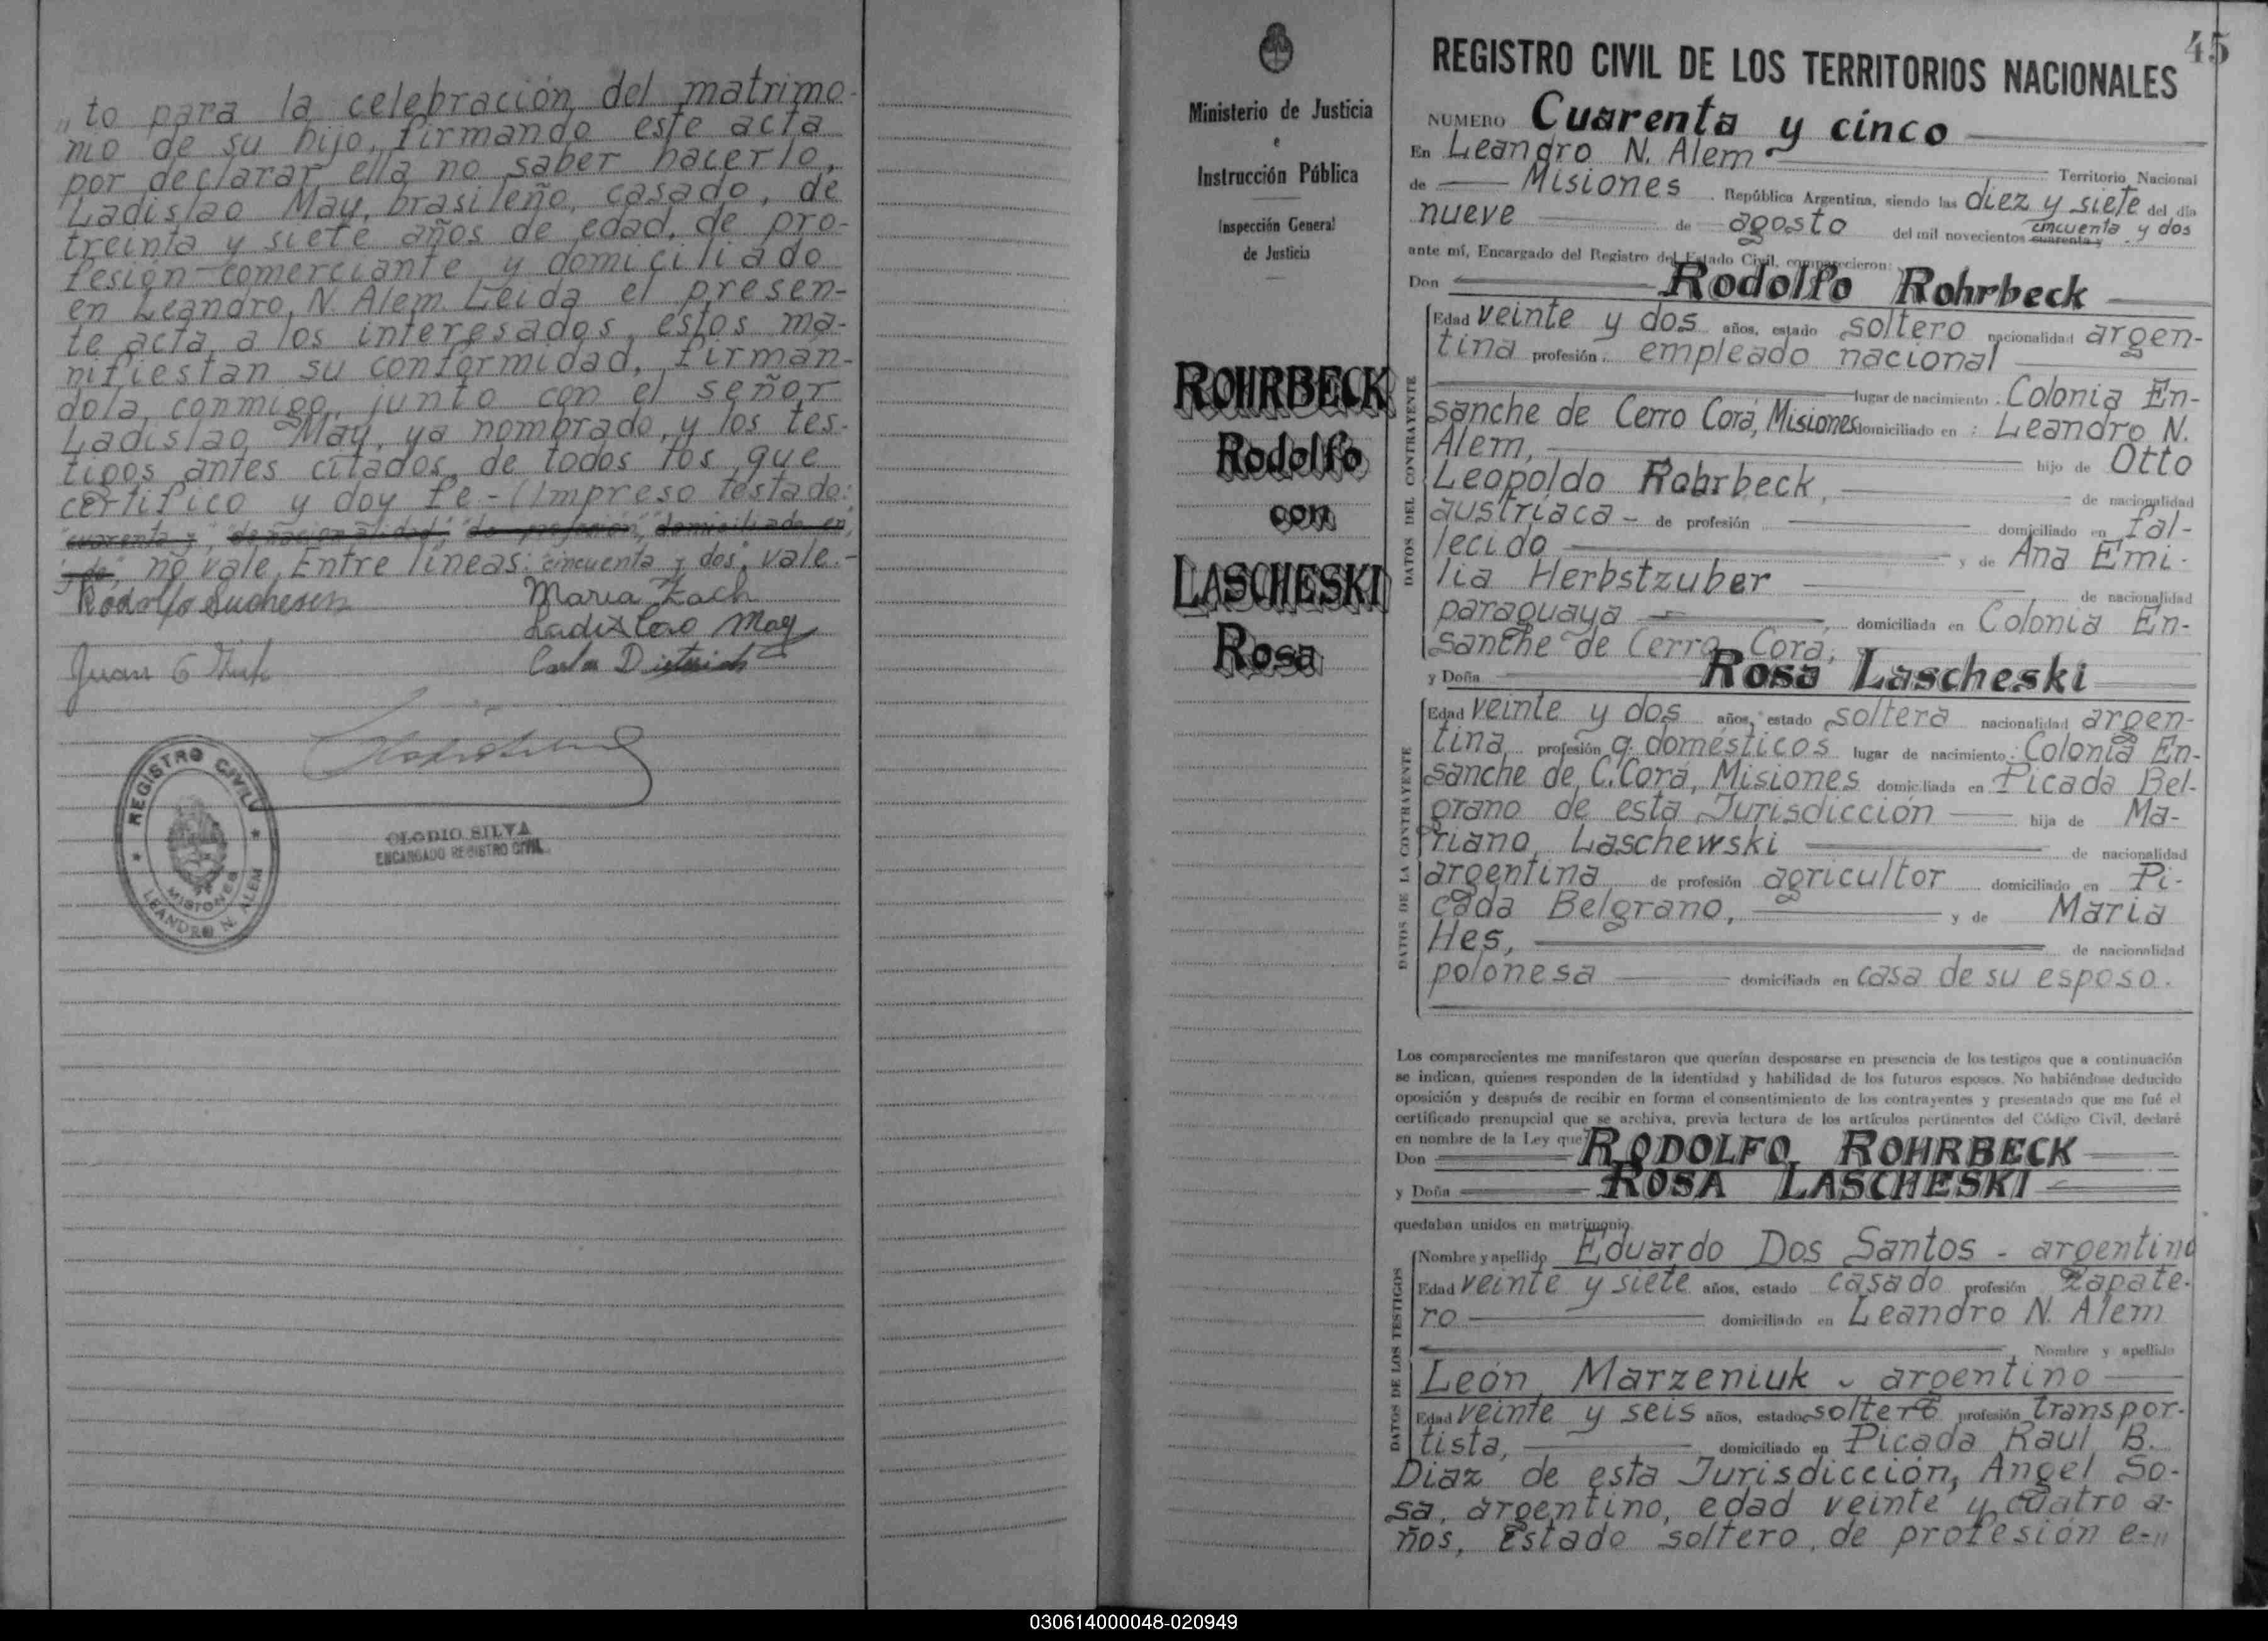 „to para la celebración del matrimo-
nio de su hijo, firmando este acta
por declarar ella no saber hacerlo,
Ladislao May, brasileño, casado, de
treinta y siete años de edad, de pro-
fesión comerciante y domiciliado
en Leandro N. Alem. Leída el presen-
te acta a los interesados, estos ma-
nifiestan su conformidad, firmán-
dola conmigo, junto con el señor
Ladislao May, ya nombrado, y los tes-
tigos antes citados, de todos los que
certifico y doy fe - (Impreso testado:
"cuarenta y", "de nacionalidad", "de profesión", "domiciliado en",
"y de", no vale. Entre líneas: "cincuenta y dos", vale.-
Rodolfo
Maria Zach
Ladislao May
Juan G
Carlos Dietrich
REGISTRO CIVIL
MISIONES
LEANDRO N. ALEM
CLODIO SILVA
ENCARGADO REGISTRO CIVIL
Ministerio de Justicia
e
Instrucción Pública
Inspección General
de Justicia
ROHRBECK
Rodolfo
con
LASCHESKI
Rosa
45
REGISTRO CIVIL DE LOS TERRITORIOS NACIONALES
NUMERO Cuarenta y cinco
En Leandro N. Alem Territorio Nacional
de Misiones República Argentina, siendo las diez y siete del día
nueve de agosto del mil novecientos cuarenta y cincuenta y dos
ante mí, Encargado del Registro del Estado Civil, comparecieron:
Don Rodolfo Rohrbeck
DATOS DEL CONTRAYENTE
Edad veinte y dos años, estado soltero nacionalidad argen-
tina profesión empleado nacional
lugar de nacimiento Colonia En-
sanche de Cerro Corá, Misiones domiciliado en : Leandro N.
Alem, hijo de Otto
Leopoldo Rohrbeck, de nacionalidad
austríaca - de profesión domiciliado en fal-
lecido y de Ana Emi-
lia Herbstzuber de nacionalidad
paraguaya domiciliada en Colonia En-
sanche de Cerro Corá,
y Doña Rosa Lascheski
DATOS DE LA CONTRAYENTE
Edad veinte y dos años, estado soltera nacionalidad argen-
tina profesión q. domésticos lugar de nacimiento: Colonia En-
sanche de C. Corá, Misiones domiciliada en Picada Bel-
grano de esta Jurisdicción hija de Ma-
riano Laschewski de nacionalidad
argentina de profesión agricultor domiciliado en Pi-
cada Belgrano, y de Maria
Hes, de nacionalidad
polonesa domiciliada en casa de su esposo.
Los comparecientes me manifestaron que querían desposarse en presencia de los testigos que a continuación
se indican, quienes responden de la identidad y habilidad de los futuros esposos. No habiéndose deducido
oposición y después de recibir en forma el consentimiento de los contrayentes y presentado que me fué el
certificado prenupcial que se archiva, previa lectura de los artículos pertinentes del Código Civil, declaré
en nombre de la Ley que
Don RODOLFO ROHRBECK
y Doña ROSA LASCHESKI
quedaban unidos en matrimonio.
DATOS DE LOS TESTIGOS
Nombre y apellido Eduardo Dos Santos - argentino
Edad veinte y siete años, estado casado profesión zapate-
ro domiciliado en Leandro N. Alem
Nombre y apellido
León Marzeniuk - argentino
Edad veinte y seis años, estado soltero profesión transpor-
tista, domiciliado en Picada Raul B.
Diaz de esta Jurisdicción, Angel So-
sa, argentino, edad veinte y cuatro a-
ños, estado soltero, de profesión e-„
030614000048-020949